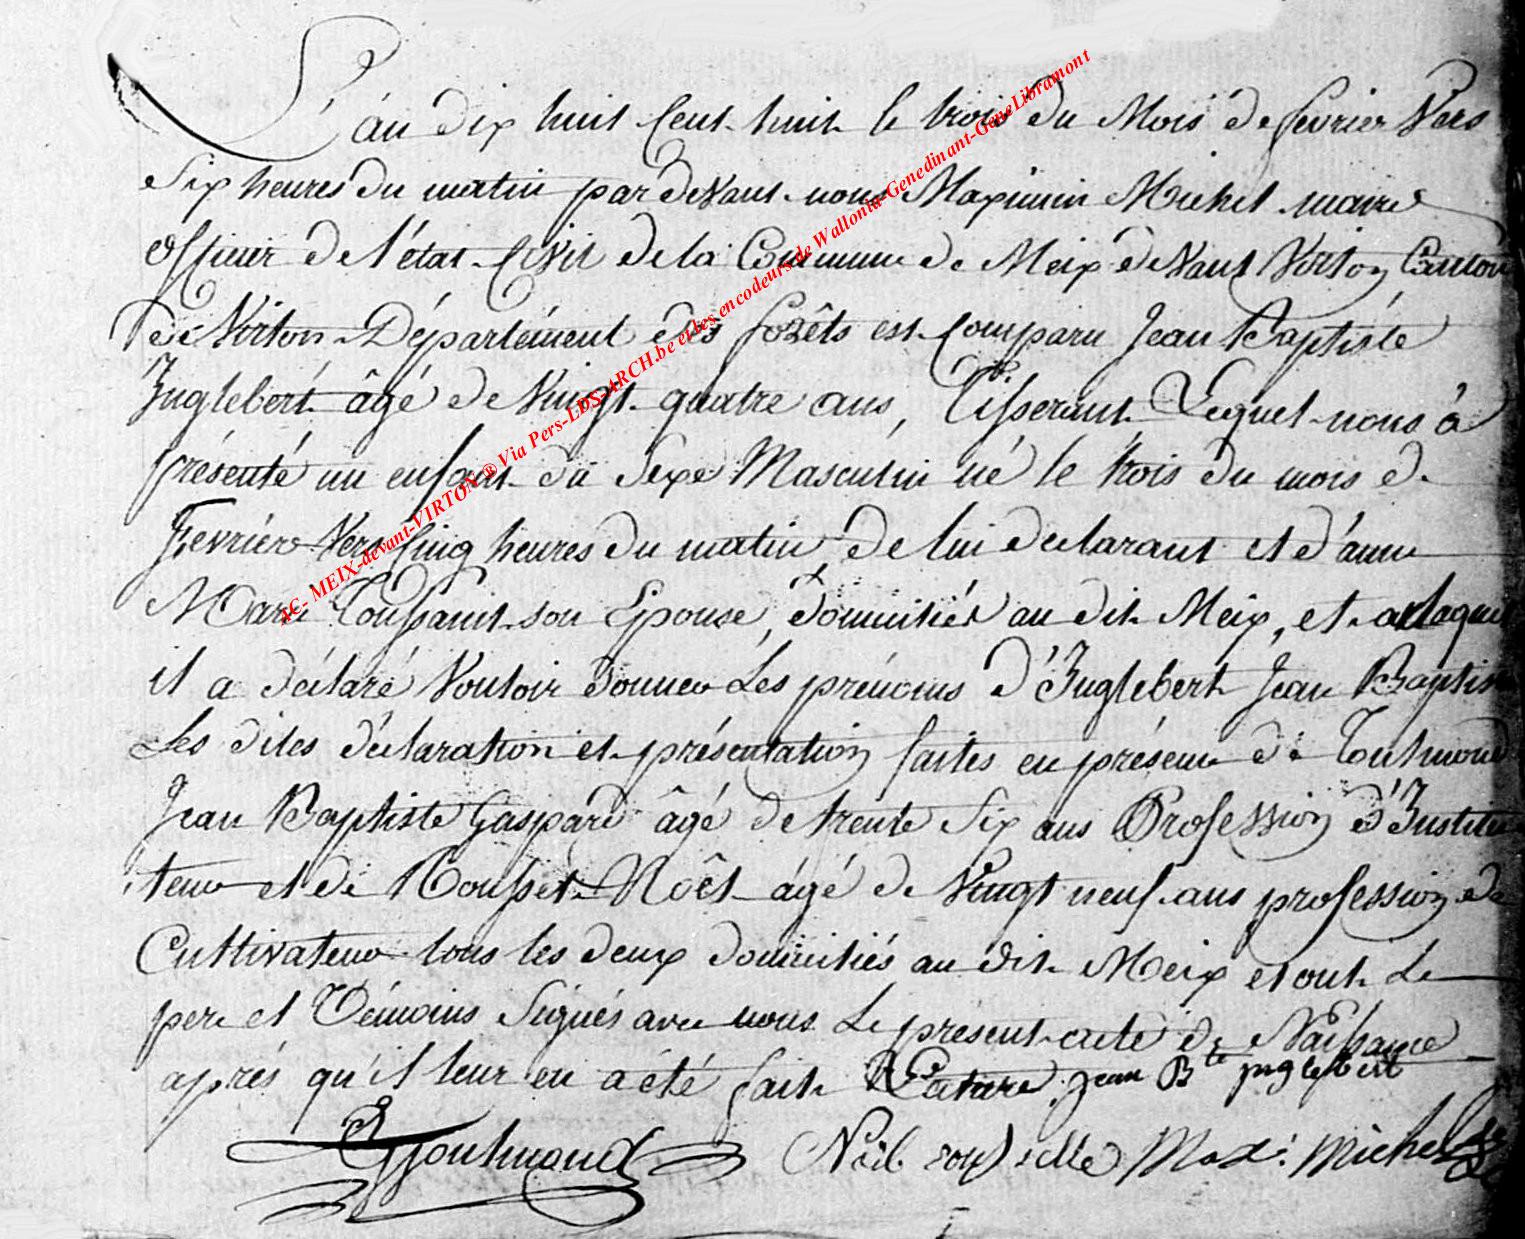 L'an dix huit Cent huit le trois du Mois de fevrier Vers
Six heures du matin par devant nous Maximin Michel maire
officier de l'état Civil de la Commune de Meix devant Virton Canton
de Virton Département des forêts est comparu Jean Baptiste
Inglebert âgé de Vingt quatre ans, Tisserant Lequel nous à
présenté un enfant du Sexe Masculin né le trois du mois de
Fevrier Vers Cinq heures du matin, de lui declarant et d'anne
Marie Toussaint son Epouse, domiciliés au dit Meix, et auquel
il a déclaré Vouloir donner Les prénoms d'Inglebert Jean Baptiste
Les dites déclaration et présentation faites en présence de Toulmond
Jean Baptiste Gaspard âgé de trente Six ans Profession d'Institu
teur et de Rousset Noël âgé de Vingt neuf ans profession de
Cultivateur tous les deux domiciliés au dit Meix et ont Le
pere et Témoins Signés avec nous Le présent acte de Naissance
après qu'il leur en a été fait Lecture. Jean Bte inglebert
Toulmond Max. Michel
AC- MEIX-devant-VIRTON ® Via Pers-LDS-ARCH.be et les encodeurs de Wallonia-Genedinant-GeneLibramont